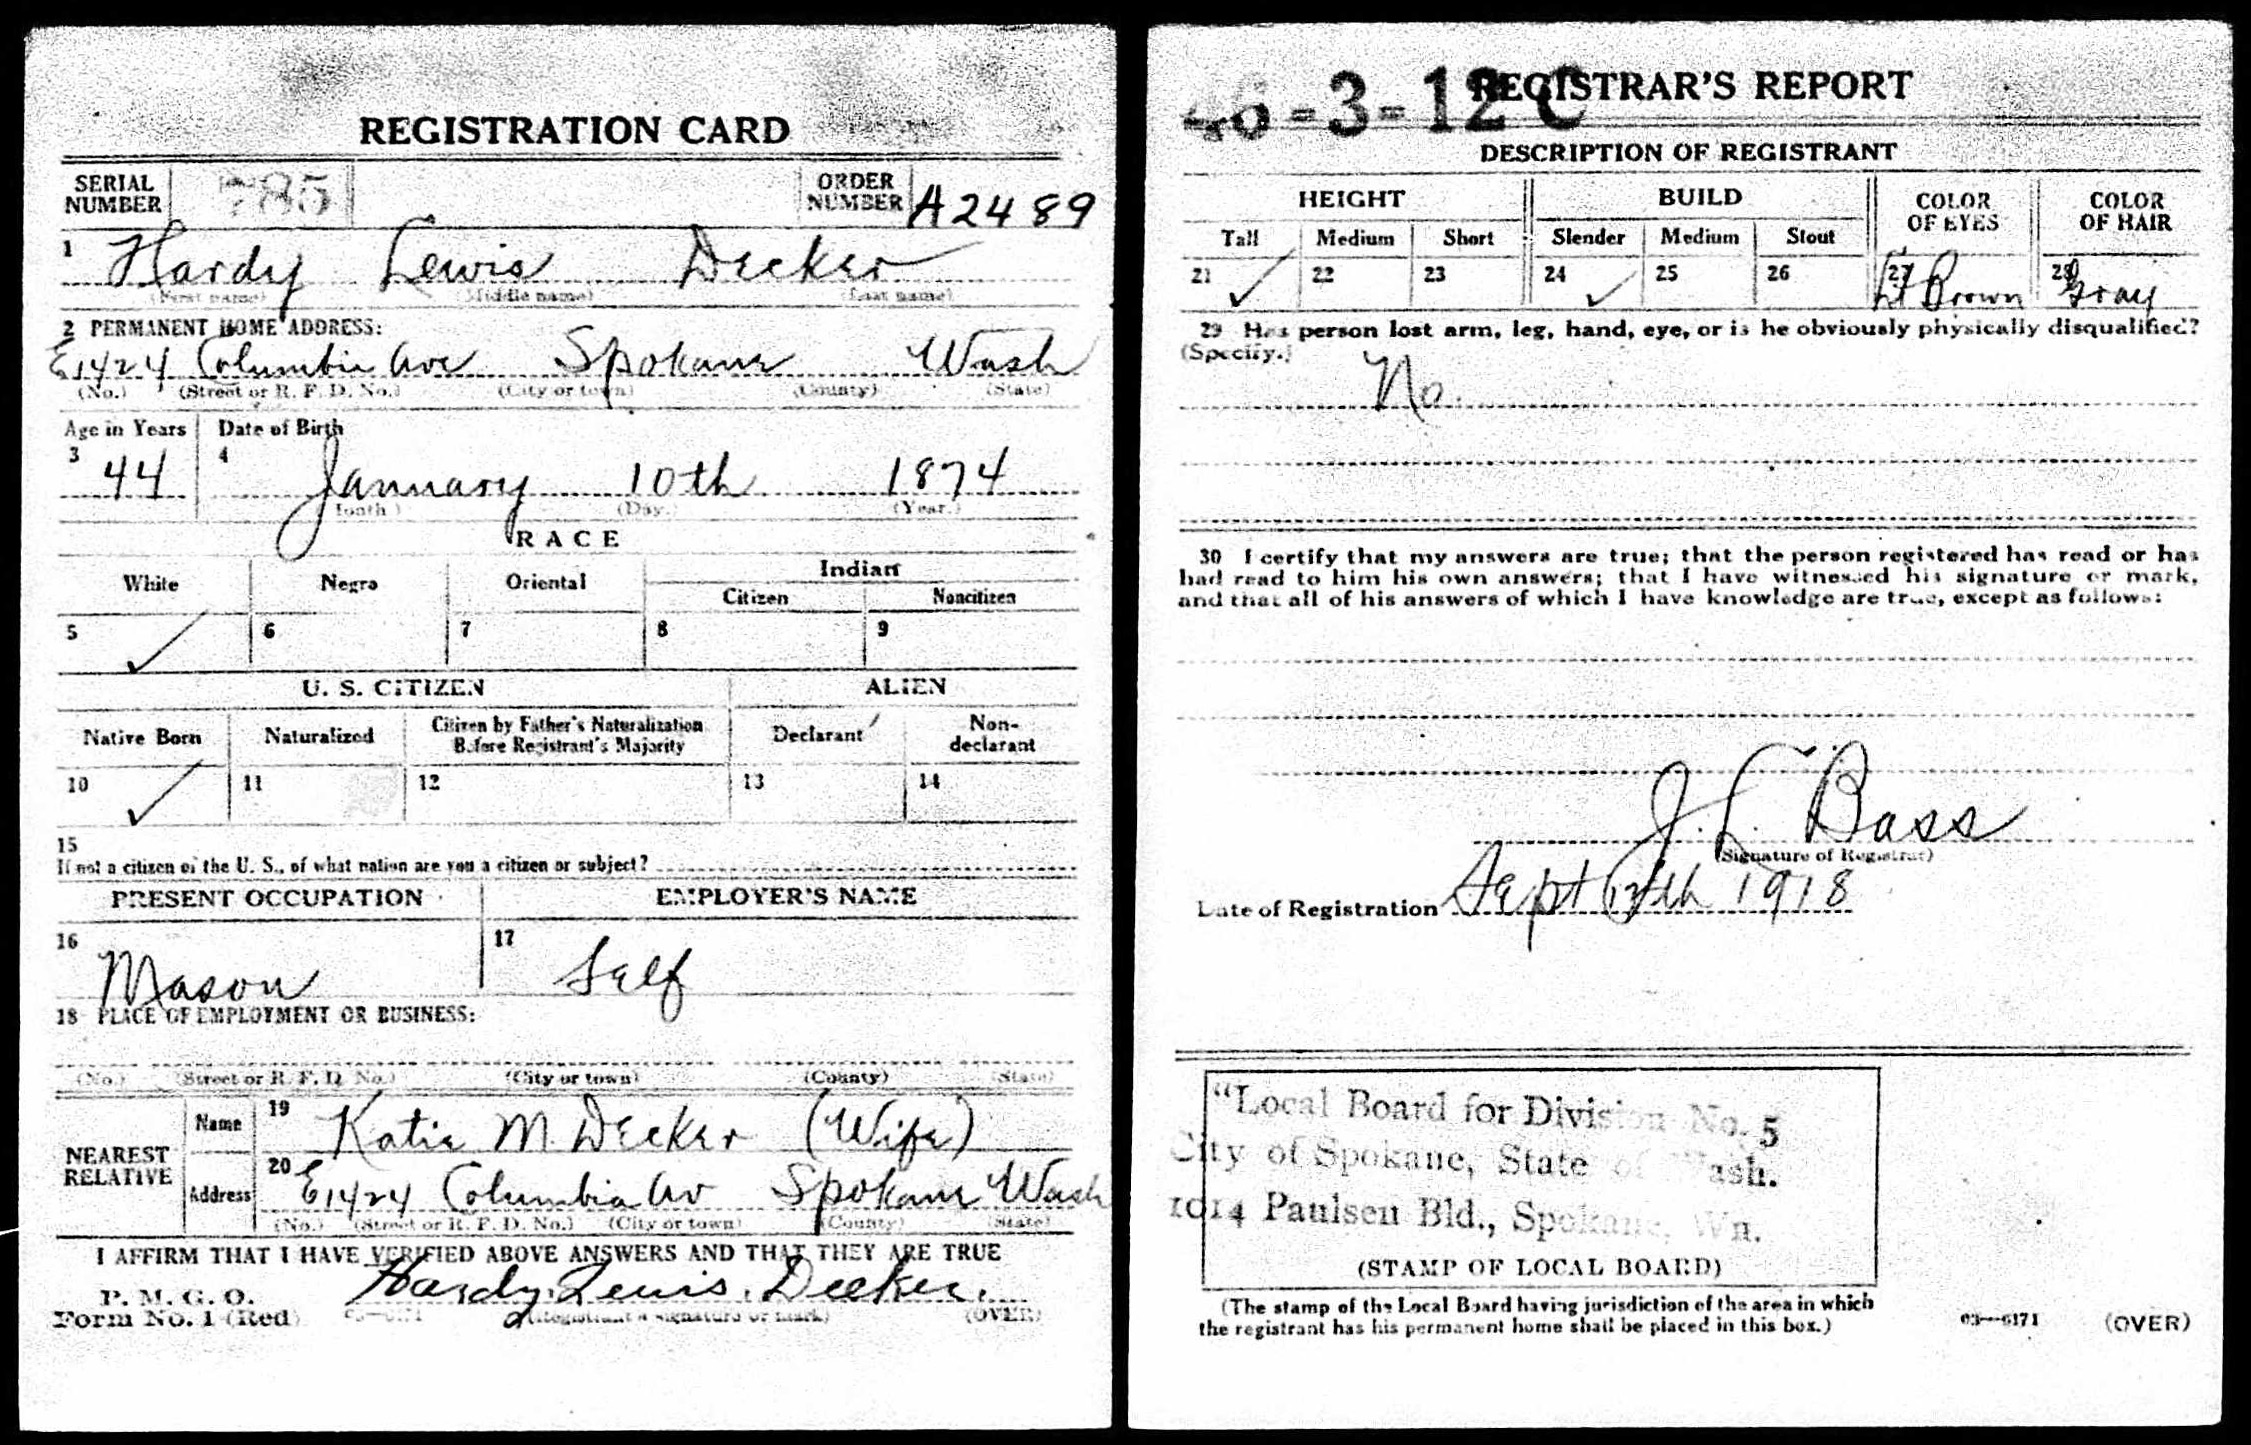 REGISTRATION CARD
SERIAL NUMBER 785 ORDER NUMBER A2489
1 Hardy Lewis Decker
(First name) (Middle name) (Last name)
2 PERMANENT HOME ADDRESS:
E1424 Columbia Ave Spokane Wash
(No.) (Street or R. F. D. No.) (City or town) (County) (State)
Age in Years Date of Birth
3 44 4 January 10th 1874
(Month.) (Day.) (Year.)
RACE
White Negro Oriental Indian
Citizen Noncitizen
5 ✓ 6 7 8 9
U. S. CITIZEN ALIEN
Native Born Naturalized Citizen by Father's Naturalization Before Registrant's Majority Declarant Non-declarant
10 ✓ 11 12 13 14
15
If not a citizen of the U. S., of what nation are you a citizen or subject?
PRESENT OCCUPATION EMPLOYER'S NAME
16 Mason 17 Self
18 PLACE OF EMPLOYMENT OR BUSINESS:
(No.) (Street or R. F. D. No.) (City or town) (County) (State)
NEAREST RELATIVE Name 19 Katie M. Decker (Wife)
Address 20 E1424 Columbia Av Spokane Wash
(No.) (Street or R. F. D. No.) (City or town) (County) (State)
I AFFIRM THAT I HAVE VERIFIED ABOVE ANSWERS AND THAT THEY ARE TRUE
P. M. G. O.
Form No. 1 (Red) Hardy Lewis Decker.
(Registrant's signature or mark) (OVER)
46-3-12 C
REGISTRAR'S REPORT
DESCRIPTION OF REGISTRANT
HEIGHT BUILD COLOR OF EYES COLOR OF HAIR
Tall Medium Short Slender Medium Stout
21 ✓ 22 23 24 ✓ 25 26 27 Lt Brown 28 Gray
29 Has person lost arm, leg, hand, eye, or is he obviously physically disqualified?
(Specify.)
No.
30 I certify that my answers are true; that the person registered has read or has
had read to him his own answers; that I have witnessed his signature or mark,
and that all of his answers of which I have knowledge are true, except as follows:
J. L. Bass
(Signature of Registrar)
Date of Registration Sept 12th 1918
"Local Board for Division No. 5
City of Spokane, State of Wash.
1014 Paulsen Bld., Spokane, Wn.
(STAMP OF LOCAL BOARD)
(The stamp of the Local Board having jurisdiction of the area in which
the registrant has his permanent home shall be placed in this box.)
03—6171 (OVER)